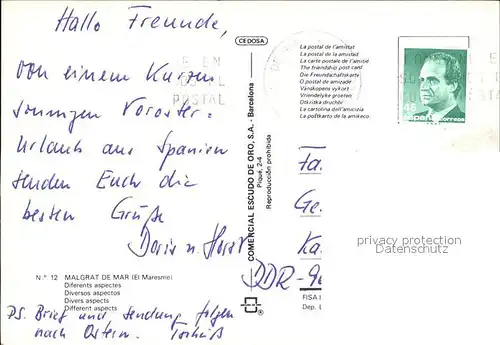 Hallo Freunde,
von einem kurzen
sonnigen Voroster-
urlaub aus Spanien
senden Euch die
besten Grüße
Doris u. Horst
Nº 12 MALGRAT DE MAR (El Maresme)
Diferents aspectes
Diversos aspectos
Divers aspects
Different aspects
PS. Brief und Sendung folgen
nach Ostern. Tschüß
CEDOSA
COMERCIAL ESCUDO DE ORO, S.A. - Barcelona
Piqué, 2-4
Reproducción prohibida
La postal de l'amistat
La postal de la amistad
La carte postale de l'amitié
The friendship post card
Die Freundschaftskarte
O postal de amizade
Vänskapens vykort
Vriendelijke groeten
La cartolina dell'amicizia
La poŝtkarto de la amikeco
48
España correos
POSTAL
Fa.
Ge.
Ka
DDR-90
privacy protection
Datenschutz
FISA
Dep. L